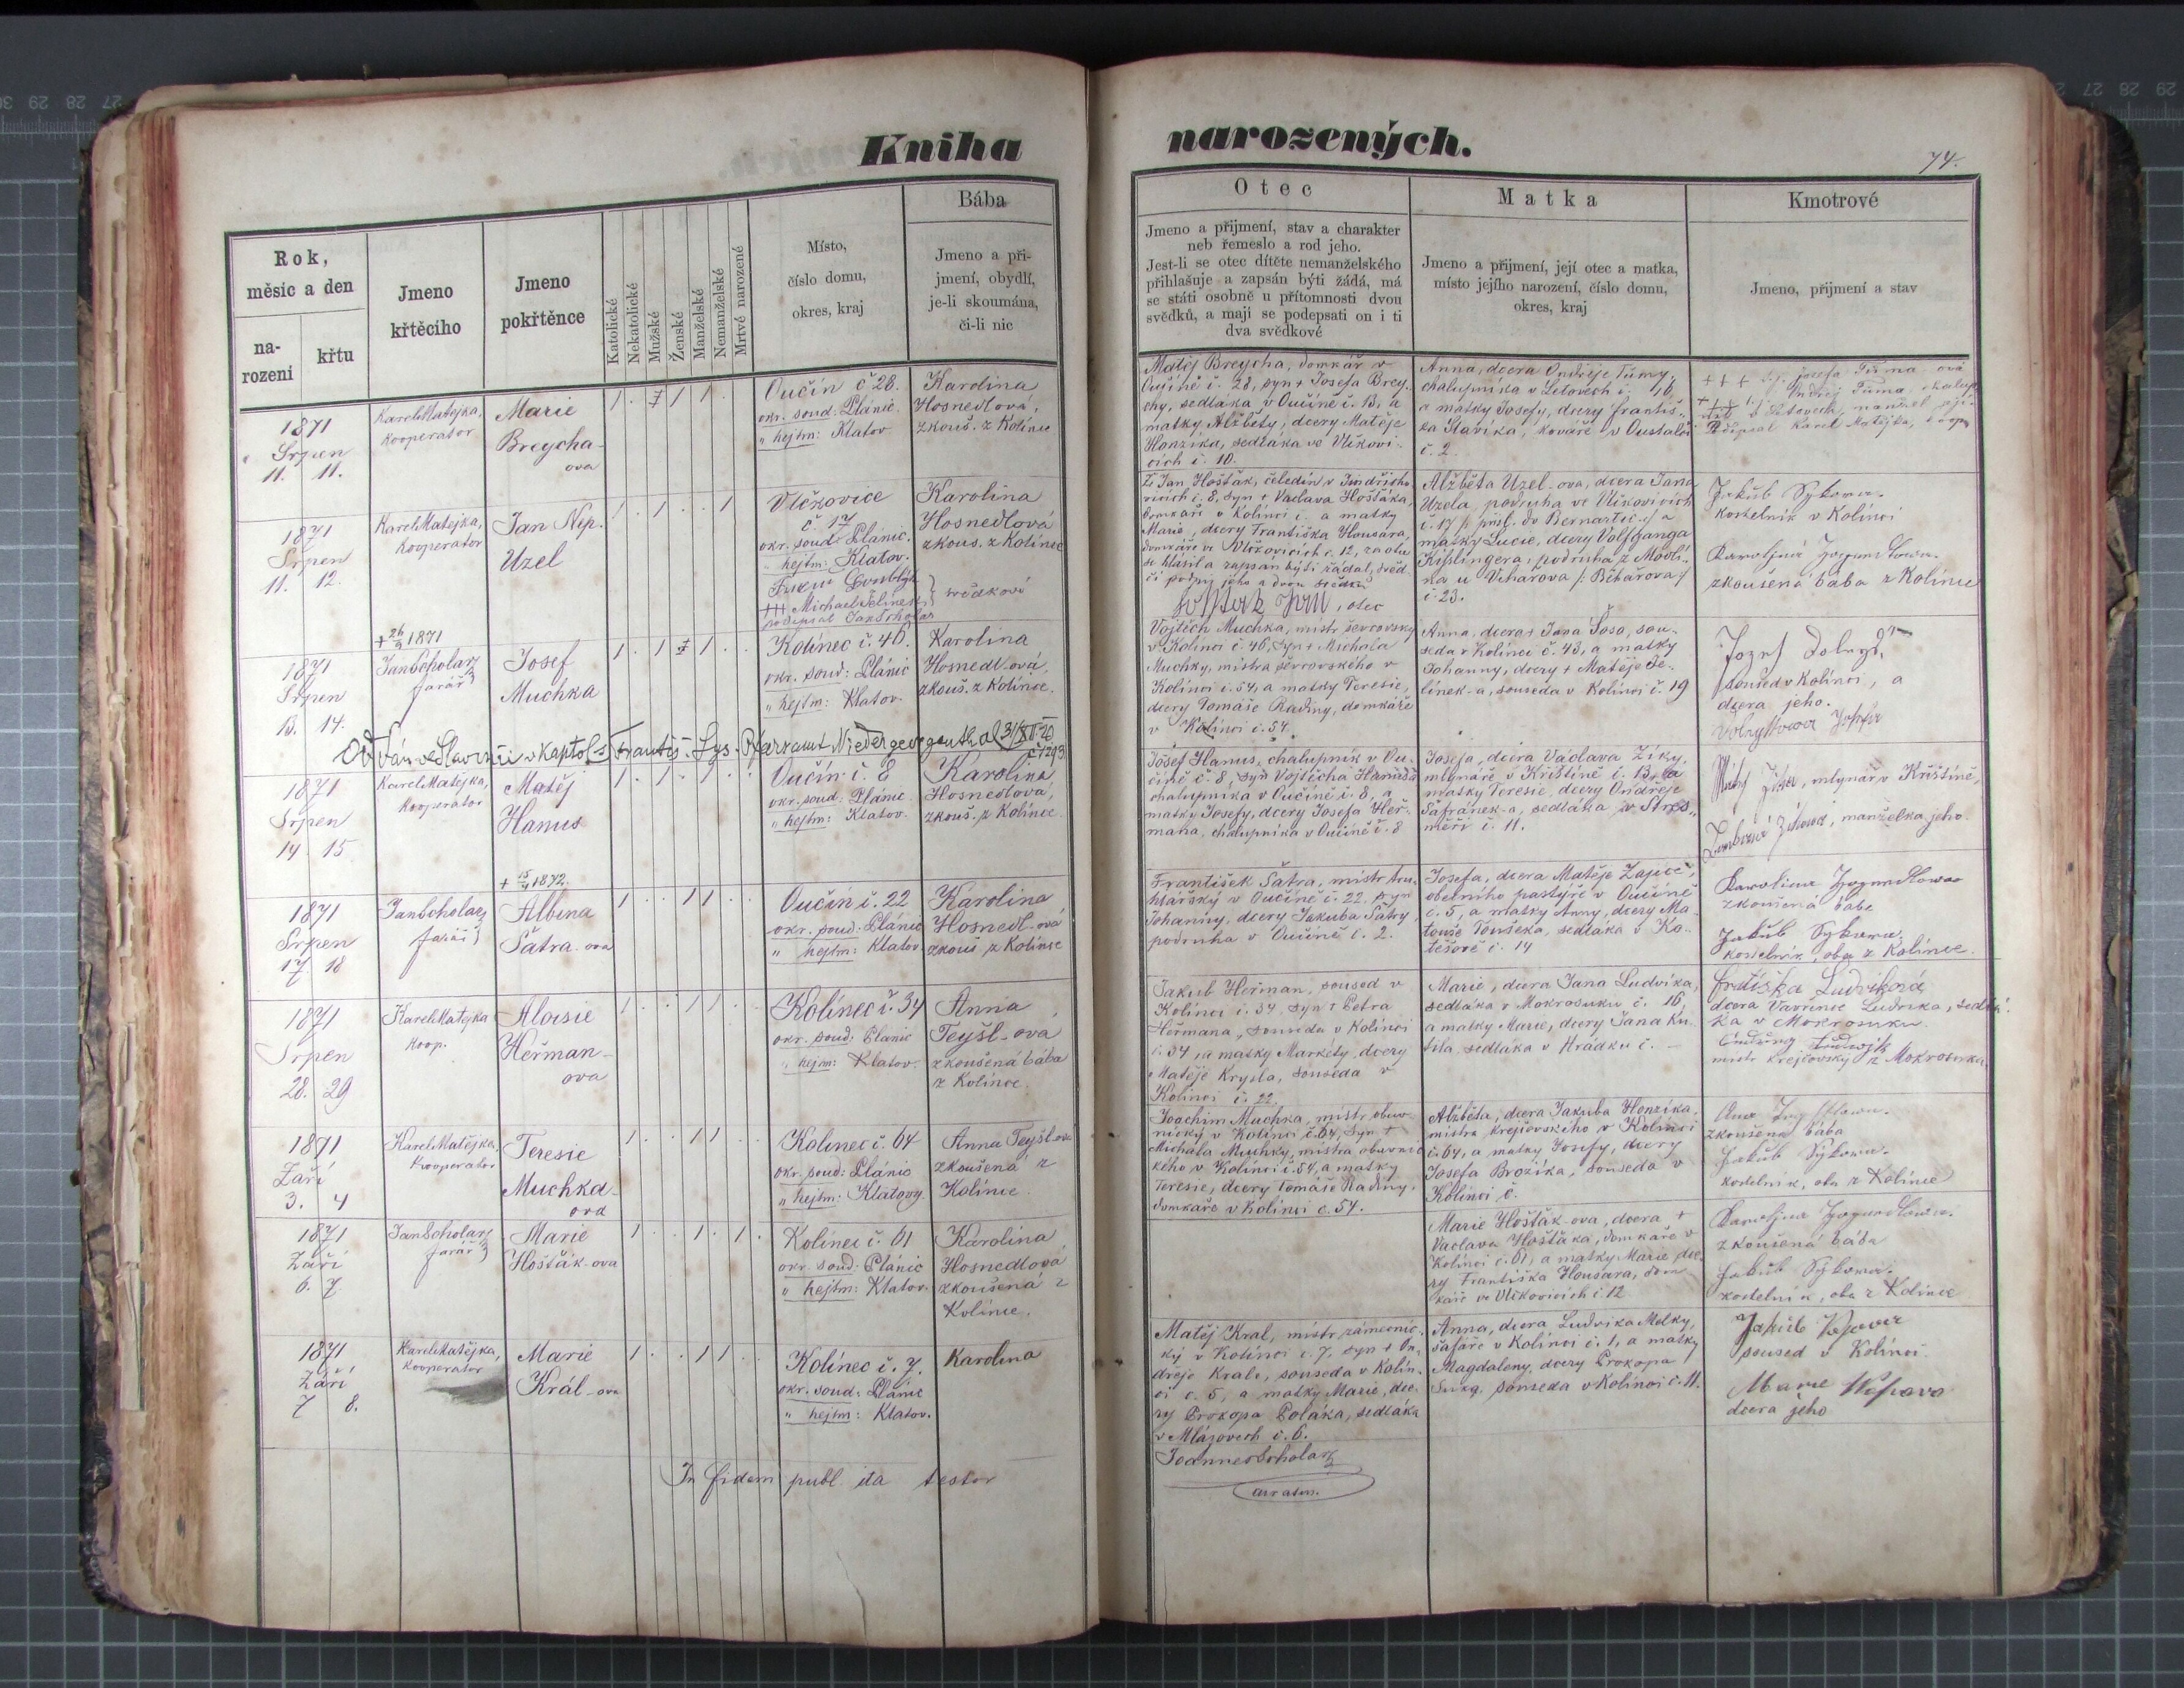 Kniha
narozených.
74.
Rok,
měsíc a den
na-
rozeni
křtu
Jmeno
křtěcího
Jmeno
pokřtěnce
Katolické
Nekatolické
Mužské
Ženské
Manželské
Nemanželské
Mrtvé narozené
Místo,
číslo domu,
okres, kraj
Bába
Jmeno a při-
jmení, obydlí,
je-li skoumána,
či-li nic
Otec
Jmeno a přijmení, stav a charakter
neb řemeslo a rod jeho.
Jest-li se otec dítěte nemanželského
přihlašuje a zapsán býti žádá, má
se státi osobně u přítomnosti dvou
svědků, a mají se podepsati on i ti
dva svědkové
Matka
Jmeno a přijmení, její otec a matka,
místo jejího narození, číslo domu,
okres, kraj
Kmotrové
Jmeno, přjmení a stav
1871
Srpen
11. 11.
Karel Matějka,
kooperator
Marie
Breycha-
ova
Oučín č 28.
okr. soud: Plánic.
" hejtm: Klatov
Karolina
Hosnedlová,
zkouš. z Kolince
Matěj Breycha, domkář v
Oučíně č. 28, syn + Josefa Brey-
chy, sedláka v Oučíně č. 13, a
matky Alžběty, dcery Matěje
Honzíka, sedláka ve Vlčkovi-
cích č. 10.
Anna, dcera Ondřeje Tůmy,
chalupníka v Letovech č. 16,
a matky Josefy, dcery Františ-
ka Slavíka, kováře v
č. 2.
+++ Josefa Tůma-ová
+++ Ondřej Tůma, chalup-
ník z Letovech, manžel její
Podepsal Karel Matějka, koop.
1871
Srpen
11. 12.
Karel Matějka,
Kooperator
Jan Nep.
Uzel
Vlčkovice
č. 17
okr. soud Plánic.
" hejtm: Klatov.
+++ Michael Jelínek
podepsal Jan Scholar
svědkové
Karolina
Hosnedlová
zkouš. z Kolince
Jan Hošťák, čeledín v Jindřicho-
vicích č. 8, syn + Václava Hošťáka,
domkáře v Kolinci č. a matky
Marie, dcery Františka Housara,
domkáře ve Vlčkovicích č. 12, za otce
se hlásil a zapsán býti žádal, svěd-
čí podpis jeho a dvou svědků
, otec
Alžběta Uzel-ova, dcera Jana
Uzela, podruha ve Vlčkovicích
č. 17 /: přísl. do Bernartic :/ a
matky Lucie, dcery Volfganga
Kisslingera, podruha z
na u Viharova /: Běhařova :/
č. 23.
Jakub Sykowa.
kostelník v Kolinci
zkoušená bába z Kolince
+ 26/9 1871
1871
Srpen
13. 14.
Jan Scholarz
farář
Josef
Muchka
Kolinec č. 46.
okr. soud: Plánic
" hejtm: Klatov.
Karolina
Hosnedl-ová,
zkouš. z Kolince.
Vojtěch Muchka, mistr ševcovský
v Kolinci č. 46, syn + Michala
Muchky, mistra ševcovského v
Kolinci č. 54, a matky Teresie,
dcery Tomáše Radiny, domkáře
v Kolinci č. 54.
Anna, dcera + Jana Šosa, sou-
seda v Kolinci č. 43, a matky
Johanny, dcery + Matěje Je-
línek-a, souseda v Kolinci č. 19
soused v Kolinci, a
dcera jeho.
Františ. Lys. Pfarramt Niedergeorgenthal 31/XII 20
č 1293
1871
Srpen
14 15
Karel Matějka,
Kooperator
Matěj
Hanus
Oučín č. 8
okr. soud: Plánic
" hejtm: Klatov.
Karolina
Hosnedlová,
zkouš. z Kolince.
Josef Hanus, chalupník v Ou-
číně č. 8, syn Vojtěcha Hanusa
chalupníka v Oučíně č. 8, a
matky Josefy, dcery Josefa Heř-
mana, chalupníka v Oučíně č. 8
Josefa, dcera Václava Ziky,
mlynáře v Křištíně č. 13, a
matky Teresie, dcery Ondřeje
Šafránek-a, sedláka ve Stře-
měři č. 11.
mlynář v Křištíně,
manželka jeho.
+ 15/4 1872.
1871
Srpen
17 18
Jan Scholarz
farář
Albina
Šatra-ova
Oučín č. 22
okr. soud: Plánic
" hejtm: Klatov
Karolina
Hosnedl-ová
zkouš z Kolince
František Šatra, mistr tru-
hlářský v Oučíně č. 22, syn
Johanny, dcery Jakuba Šatry,
podruha v Oučíně č. 2.
Josefa, dcera Matěje Zajíce,
obecního pastýře v Oučíně
č. 5, a matky Anny, dcery Ma-
touše Toušeka, sedláka v Ko-
tešově č. 14
zkoušená bába
Jakub Sykowa.
kostelník, oba z Kolince.
1871
Srpen
28. 29
Karel Matějka
Koop.
Aloisie
Heřman-
ova
Kolinec č. 34
okr. soud: Plánic
" hejm: Klatov.
Anna
Teyšl-ová
zkoušená bába
z Kolince.
Jakub Heřman, soused v
Kolinci č. 34, syn + Petra
Heřmana, souseda v Kolinci
č. 34 a matky Markéty, dcery
Matěje Krysla, souseda v
Kolinci č. 22.
Marie, dcera Jana Ludvíka,
sedláka v Mokrosuku č. 16,
a matky Marie, dcery Jana Ku-
bila, sedláka v Hrádku č. —
Ludvíková
dcera Vavřince Ludvíka, sedlá-
ka v Mokrosuku.
mistr krejčovský z Mokrosuka
1871
Září
3. 4
Karel Matějka,
Kooperator
Teresie
Muchka-
ova
Kolinec č. 64
okr. soud: Plánic
" hejtm: Klatovy
Anna Teyšl-ova
zkoušená z
Kolince
Joachim Muchka, mistr obuv-
nický v Kolinci č. 64, syn +
Michala Muchky, mistra obuvnic-
kého v Kolinci č. 54, a matky
Teresie, dcery Tomáše Radiny,
domkáře v Kolinci č. 54.
Alžběta, dcera Jakuba Honzíka,
mistra krejčovského v Kolinci
č. 64, a matky Josefy, dcery
Josefa Brožíka, souseda v
Kolinci č.
zkoušená bába
Jakub Sykowa.
kostelník, oba z Kolince
1871
Září
6. 7
Jan Scholarz
farář
Marie
Hošťák-ova
Kolinec č. 61
okr. soud: Plánic
" hejtm: Klatov.
Karolina
Hosnedlová
zkoušená z
Kolince.
Marie Hošťák-ova, dcera +
Václava Hošťáka, domkáře v
Kolinci č. 61, a matky Marie, dce-
ry Františka Housara, dom-
káře ve Vlčkovicích č 12
zkoušená bába
Jakub Sykowa.
kostelník, oba z Kolince
1871
Září
7 8.
Karel Matějka,
kooperator
Marie
Král-ova
Kolinec č. 7.
okr. soud: Plánic
" hejtm: Klatov.
Karolina
Matěj Kral, mistr zámečnic-
ký v Kolinci č. 7, syn + On-
dřeje Krale, souseda v Kolin-
ci č. 5, a matky Marie, dce-
ry Prokopa Poláka, sedláka
v Mlázovech č. 6.
Anna, dcera Ludvíka Melky,
šafáře v Kolinci č. 1, a matky
Magdaleny, dcery Prokopa
souseda v Kolinci č. 11.
Jakub
soused v Kolinci
Marie
dcera jeho
In fidem publ. ita testor
Joannes Scholarz